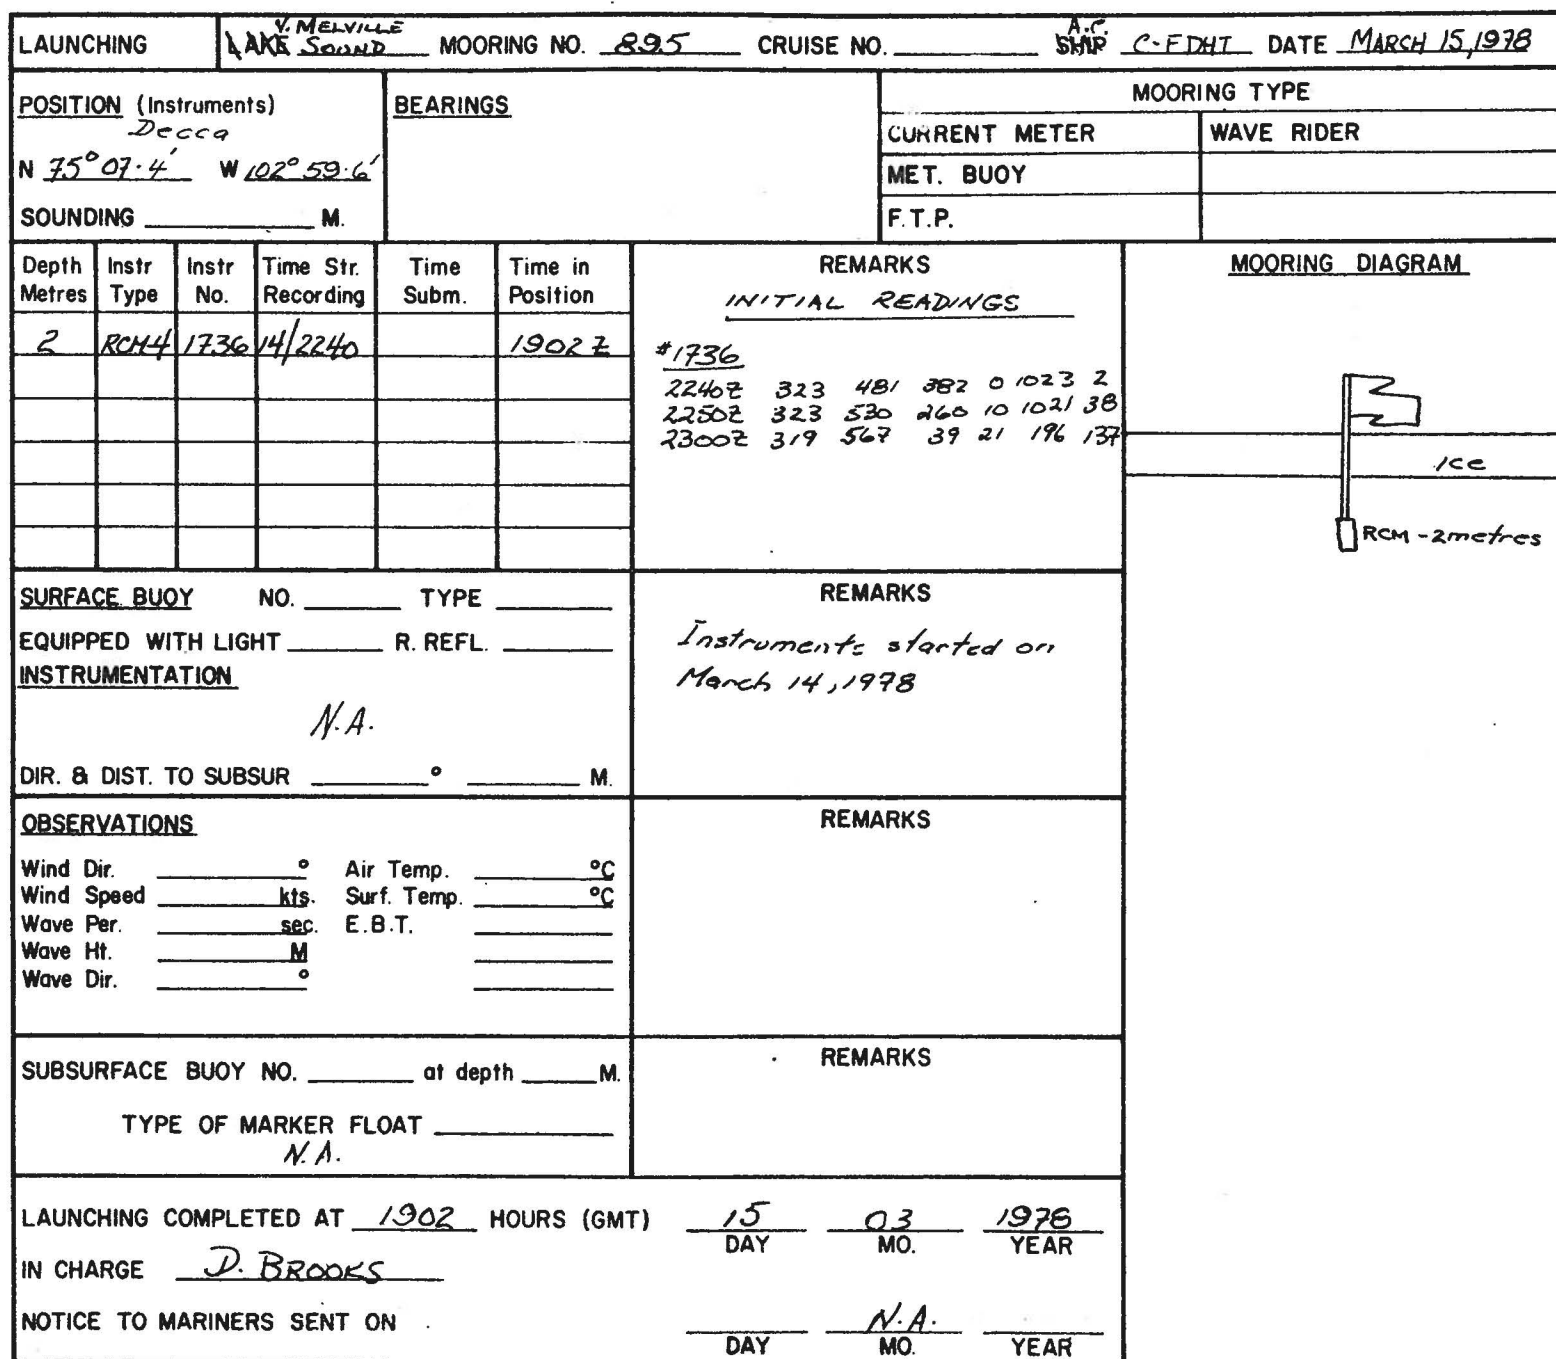 LAUNCHING LAKE V. MELVILLE SOUND MOORING NO. 895 CRUISE NO. SHIP A.C. C-FDHT DATE MARCH 15, 1978
POSITION (Instruments)
Decca
N 75° 07.4' W 102° 59.6'
SOUNDING M.
BEARINGS
MOORING TYPE
CURRENT METER WAVE RIDER
MET. BUOY
F.T.P.
Depth Metres Instr Type Instr No. Time Str. Recording Time Subm. Time in Position
2 RCM4 1736 14/2240 1902Z
REMARKS
INITIAL READINGS
#1736
2240Z 323 481 382 0 1023 2
2250Z 323 530 260 10 1021 38
2300Z 319 567 39 21 196 137
MOORING DIAGRAM
Ice
RCM - 2metres
SURFACE BUOY NO. TYPE
EQUIPPED WITH LIGHT R. REFL.
INSTRUMENTATION
N.A.
DIR. & DIST. TO SUBSUR ° M.
REMARKS
Instruments started on
March 14, 1978
OBSERVATIONS
Wind Dir. ° Air Temp. °C
Wind Speed kts. Surf. Temp. °C
Wave Per. sec. E.B.T.
Wave Ht. M
Wave Dir. °
REMARKS
SUBSURFACE BUOY NO. at depth M.
TYPE OF MARKER FLOAT
N.A.
REMARKS
LAUNCHING COMPLETED AT 1902 HOURS (GMT) 15 03 1978
DAY MO. YEAR
IN CHARGE D. BROOKS
NOTICE TO MARINERS SENT ON N.A.
DAY MO. YEAR